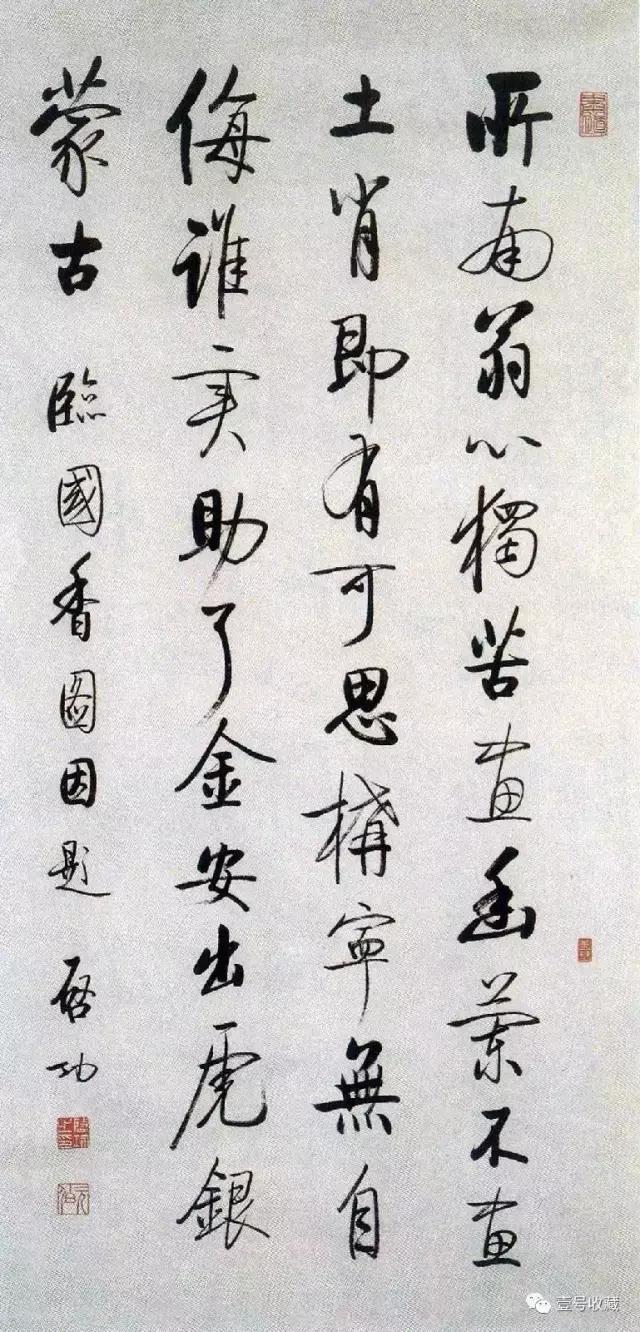 所南翁心獨苦畫幽蘭不畫
土肖即有可思構寧無自
侮誰實助了金安出虎銀
蒙古 臨國香圖因題 啓功
壹号收藏